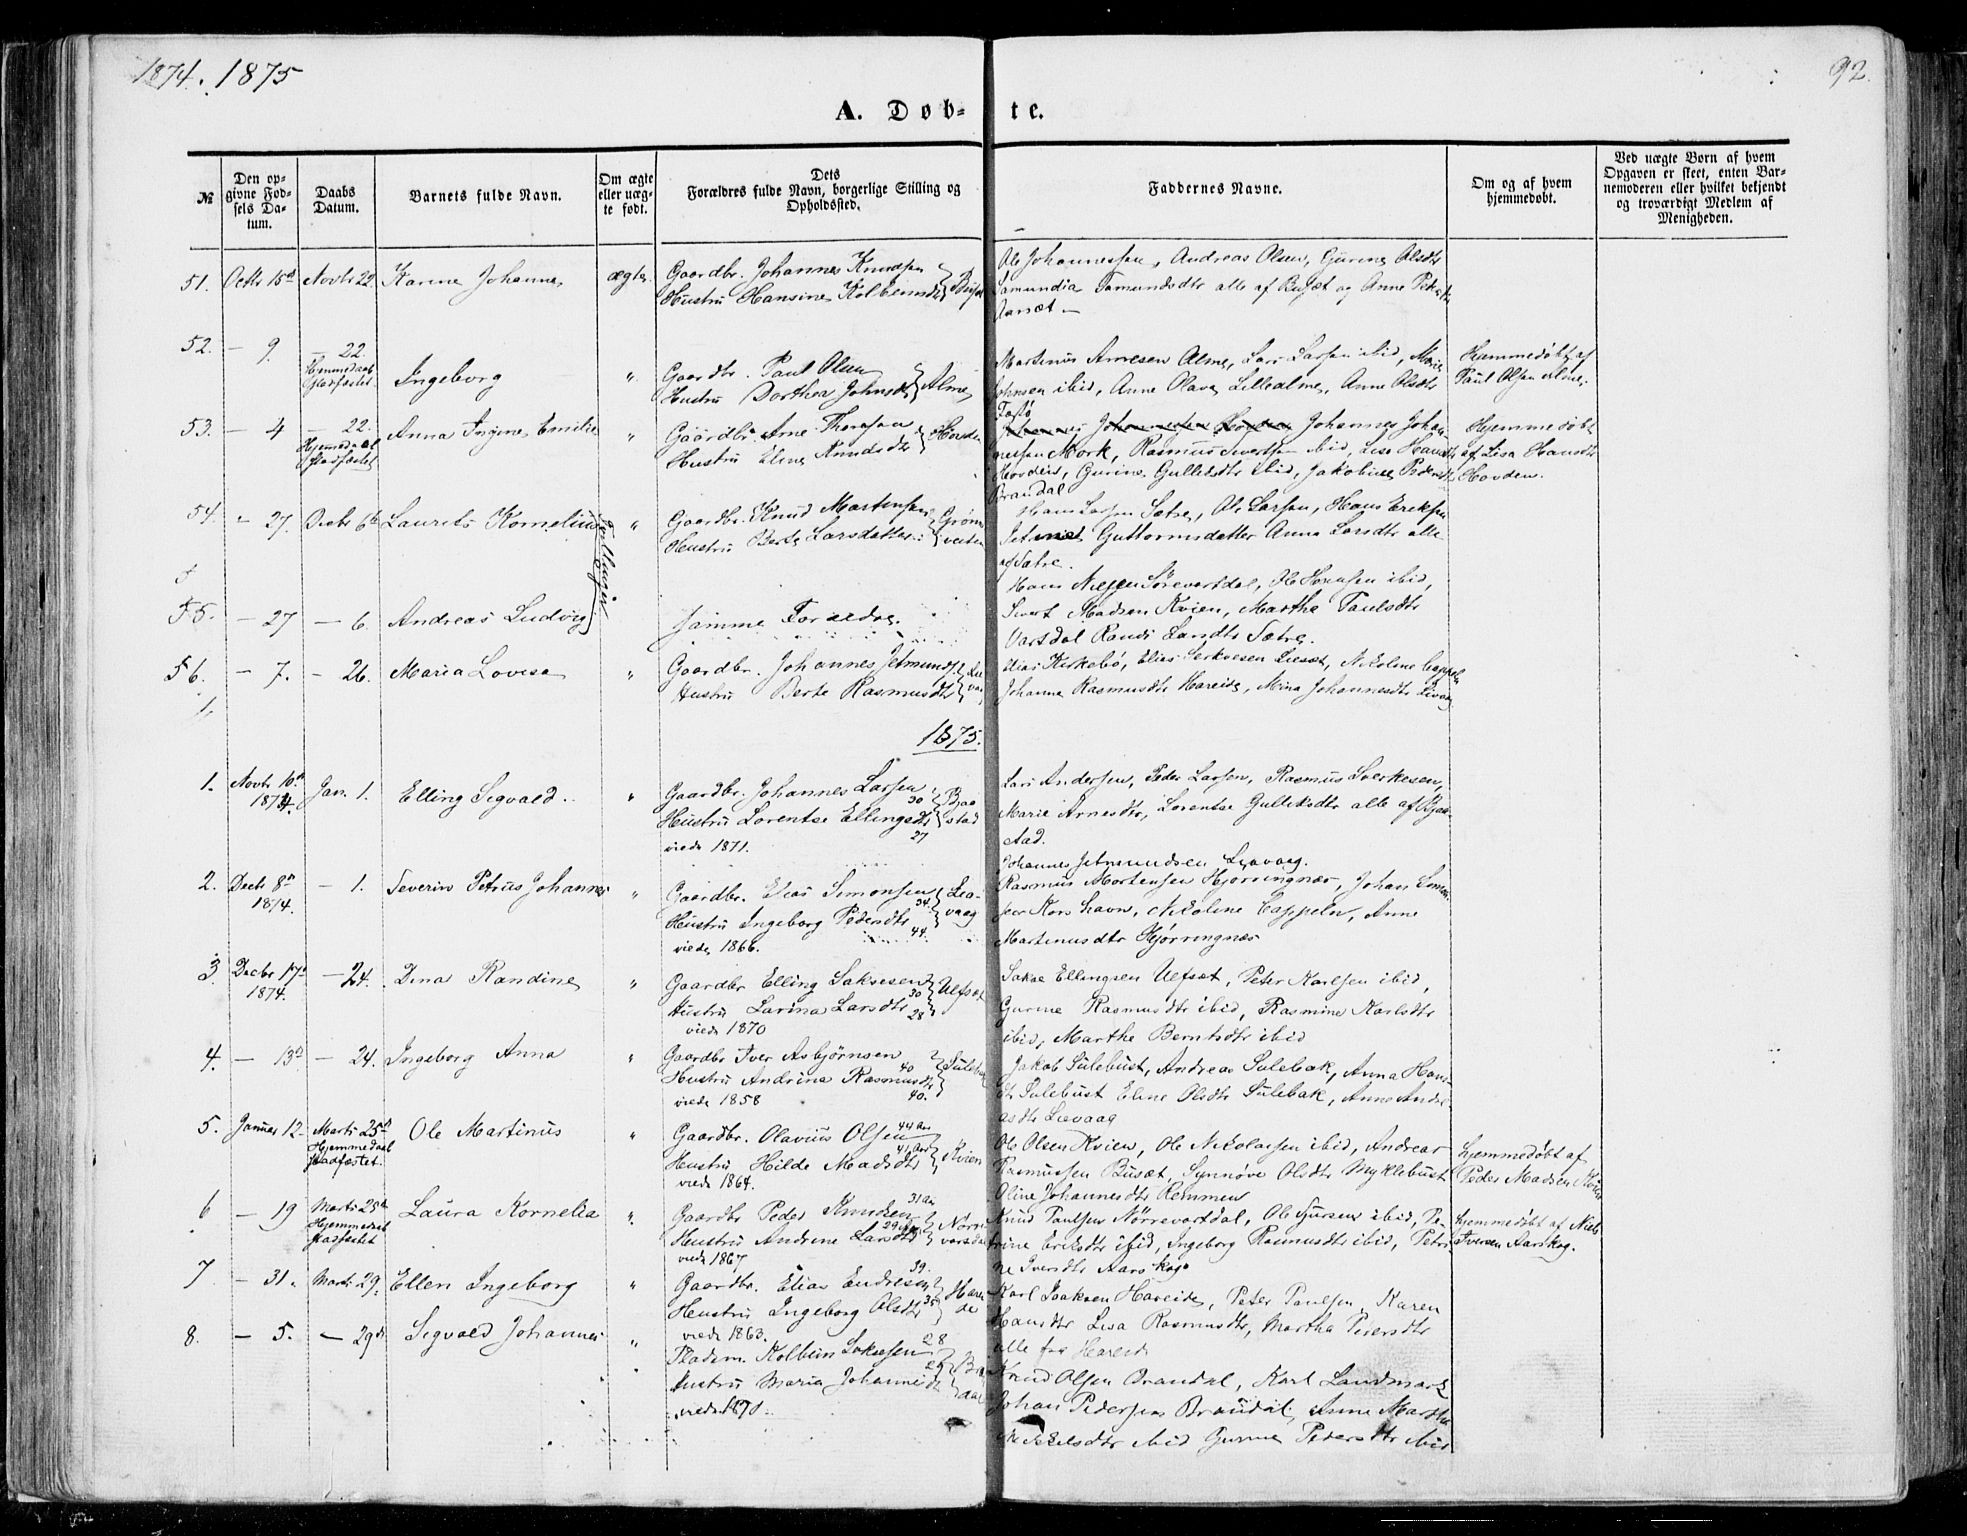 1874. 1875
92.
A. Døb-
te.
№
Den op-
givne Fød-
sels Da-
tum.
Daabs
Datum.
Barnets fulde Navn.
Om ægte
eller uæg-
te født.
Dets
Forældres fulde Navn, borgerlige Stilling og
Opholdssted.
Faddernes Navne.
Om og af hvem
hjemmedøbt.
Ved uægte Børn af hvem
Opgaven er skeet, enten Bar-
nemoderen eller hvilket bekjendt
og troværdigt Medlem af
Menigheden.
51. Octbr 15de Novbr 22 Karine Johanne ægte
Gaardbr. Johannes Knudsen
Hustru Hansine Kolbeinsdtr
Ole Johannessen, Andreas Olsen, Gurine Olsdtr
Samundia Samundsdtr alle af Busæt og Anne
52. — 9. — 22.
Hjemmedaab
stadfæstet
Ingeborg "
Gaardbr. Paul Olsen
Hustru Dorthea Johnsdtr Alme
Martinus Arnesen Alme, Lars Larsen ibid,
Johnsen ibid, Anne Olava Lillealme, Anne Olsdtr
Hjemmedøbt af
Paul Olsen Alme.
53. — 4 — 22.
Hjemmedaab
stadfæstet
Anna Emilie "
Gaardbr. Arne
Hustru Eline Knudsdtr Hovden
Johannes Johan-
nessen Mork, Rasmus Sivertsen ibid, Lisa Hansdtr
Hovden, Gurine ibid, Jakobine Pedersdtr
Brandal
Hjemmedøbt
af Lisa Hansdtr
Hovden.
54. — 27. Decbr 6te Laurits Kornelius "
Tvillinger
Gaardbr. Knud Mortensen
Hustru Berte Larsdatter
Hans Larsen Sætre, Ole Larsen, Hans Eriksen
Guttormsdatter Anna Larsdtr alle
af Sætre.
55. — 27 — 6. Andreas Ludvig
Samme Forældre.
Hans Sørevartdal, Ole ibid,
Sivert Madsen Kvien, Martha Paulsdtr
Vartdal Sætre.
56. — 7. — 26. Maria Lovise "
Gaardbr. Johannes Jetmunds.
Hustru Berte Rasmusdtr
Elias Kirkebø, Elias Liesæt, Nikoline Cappeln
Johanne Rasmusdtr Hareide, Mina Johannesdtr
1875.
1. Novbr 10de
1874. Jan. 1. Elling Sigvald "
Gaardbr. Johannes Larsen
30
Hustru Lorentse Ellingsdtr
27
viede 1871.
Bjaa-
stad
Lars Andersen, Peder Larsen, Rasmus Sverkesen,
Marie Arnesdtr, Lorentse alle af Bjaa-
stad.
2. Decbr 8de
1874. — 1. Severin Petrus Johannes "
Gaardbr. Elias Simonsen
34
Hustru Ingeborg Pedersdtr
44.
viede 1866.
Lia-
vaag
Johannes Jetmundsen Liavaag.
Rasmus Mortensen Hjørringnæs, Johan
Korshavn, Nikoline Cappeln, Anne
Martinusdtr Hjørringnæs
3. Decbr 17de
1874. — 24. Dina Randine "
Gaardbr Elling Saksesen
30
Hustru Larina Larsdtr
28
viede 1870
Ulfsæt
Sakse Ellingsen Ulfsæt, Peter Karlsen ibid,
Gurine Rasmusdtr ibid, Rasmine Karlsdtr
ibid, Marthe Berntsdtr ibid
4. — 13de — 24. Ingeborg Anna "
Gaardbr Iver Asbjørnsen
40
Hustru Andrina Rasmusdtr
40.
viede 1858
Sulebak
Jakob Sulebust, Andreas Sulebak, Anna Hans-
dtr Sulebust Eline Olsdtr Sulebak, Anne Andre-
asdtr Liavaag
5. Januar 12 Marts 25de
Hjemmedaab
stadfæstet.
Ole Martinus "
Gaardbr. Olavius Olsen
44 Aar
41 Aar
Hustru Hilde Madsdtr
viede 1864.
Kvien
Ole Olsen Kvien, Ole Nikolaisen ibid, Andreas
Rasmussen Busæt, Synnøve Olsdtr Myklebust
Oline Johannesdtr Remmen
hjemmedøbt af
Peder Madsen Kvien
6 — 19 Marts 25de
Hjemmedaab
stadfæstet
Laura Kornelia "
Gaardbr Peder Knudsen
31 Aar
Hustru Andrine Larsdtr
viede 1867
Nørre-
vartdal
Knud Paulsen Nørrevartdal, Ole ibid, Pe-
trine Eriksdtr ibid, Ingeborg Rasmusdtr ibid, Petri-
ne Iversdtr Aarskog
hjemmedøbt af Niels
Iversen Aarskog.
7 — 31 Marts 29. Ellen Ingeborg "
Gaardbr. Elias Endresen
39.
Hustru Ingeborg Olsdtr
35
viede 1863.
Harei-
de
Karl Isaksen Hareide, Peter Paulsen, Karen
Hansdtr Lisa Rasmusdtr, Martha Pedersdtr
alle fra Hareid
8. — 5. — 29de Sigvald Johannes "
Pladsm. Kolbein Saksesen
28
Hustru Maria Johannesdtr
viede 1870.
Knud Olsen Brandal, Karl Landmark
Johan Pedersen Brandal, Anne Martha
ibid Gurine Pedersdtr ibid